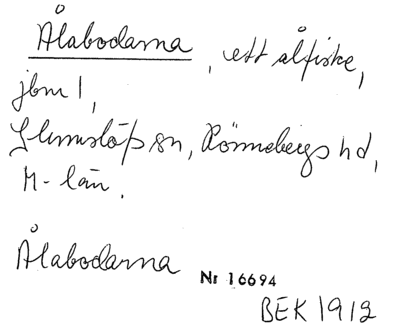 Ålabodarna, ett ålfiske,
jbm 1,
Glumslöps sn, Rönnebergs hd,
M-län.
Ålabodarna
Nr 16694
BEK 1912